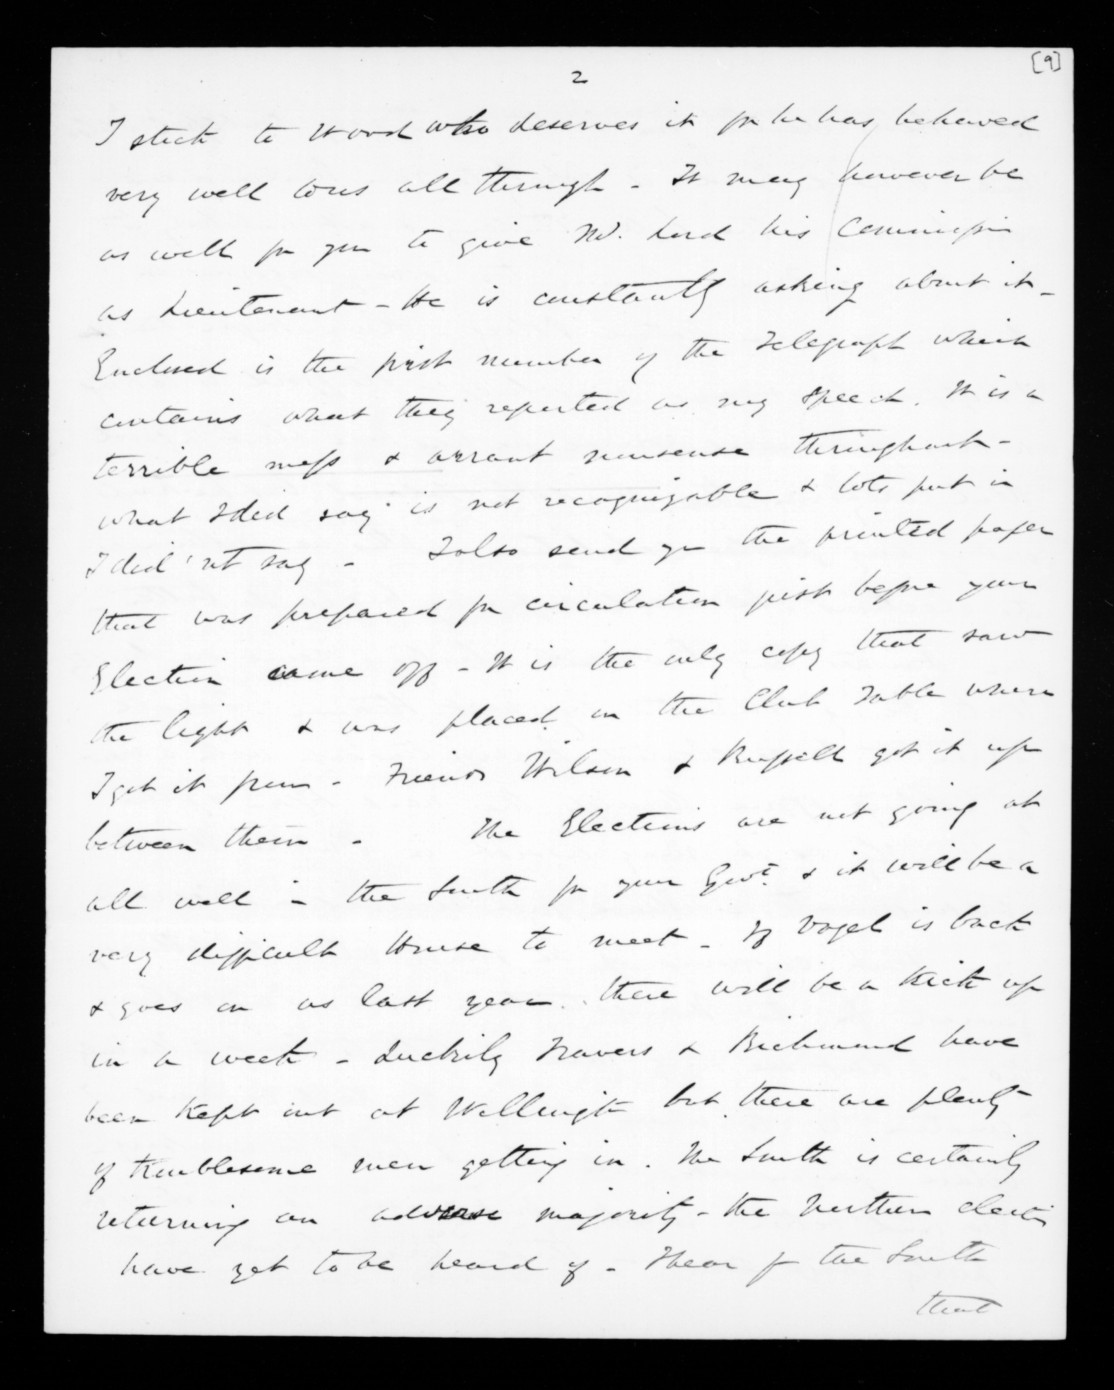 [9]
2
I stick to Wood who deserves it for he has behaved
very well to us all through - It may however be
as well for you to give Mr. Lord his Commission
as Lieutenant - He is constantly asking about it -
Enclosed is the first number of the Telegraph which
contains what they reported as my speech. It is a
terrible mess & arrant nonsense throughout -
what I did say is not recognizable & lots put in
I did'nt say - I also send you the printed paper
that was prepared for circulation just before your
Election came off - It is the only copy that saw
the light & was placed on the Club Table where
I got it from - Friends Wilson & Russell got it up
between them - The Elections are not going at
all well in the South for your Govt. & it will be a
very difficult House to meet - If Vogel is back
& goes on as last year there will be a kick up
in a week - Luckily Travers & Richmond have
been kept out at Wellington but there are plenty
of troublesome men getting in. The South is certainly
returning an adverse majority - the Northern electi
have yet to be heard of - I hear fr the South
that